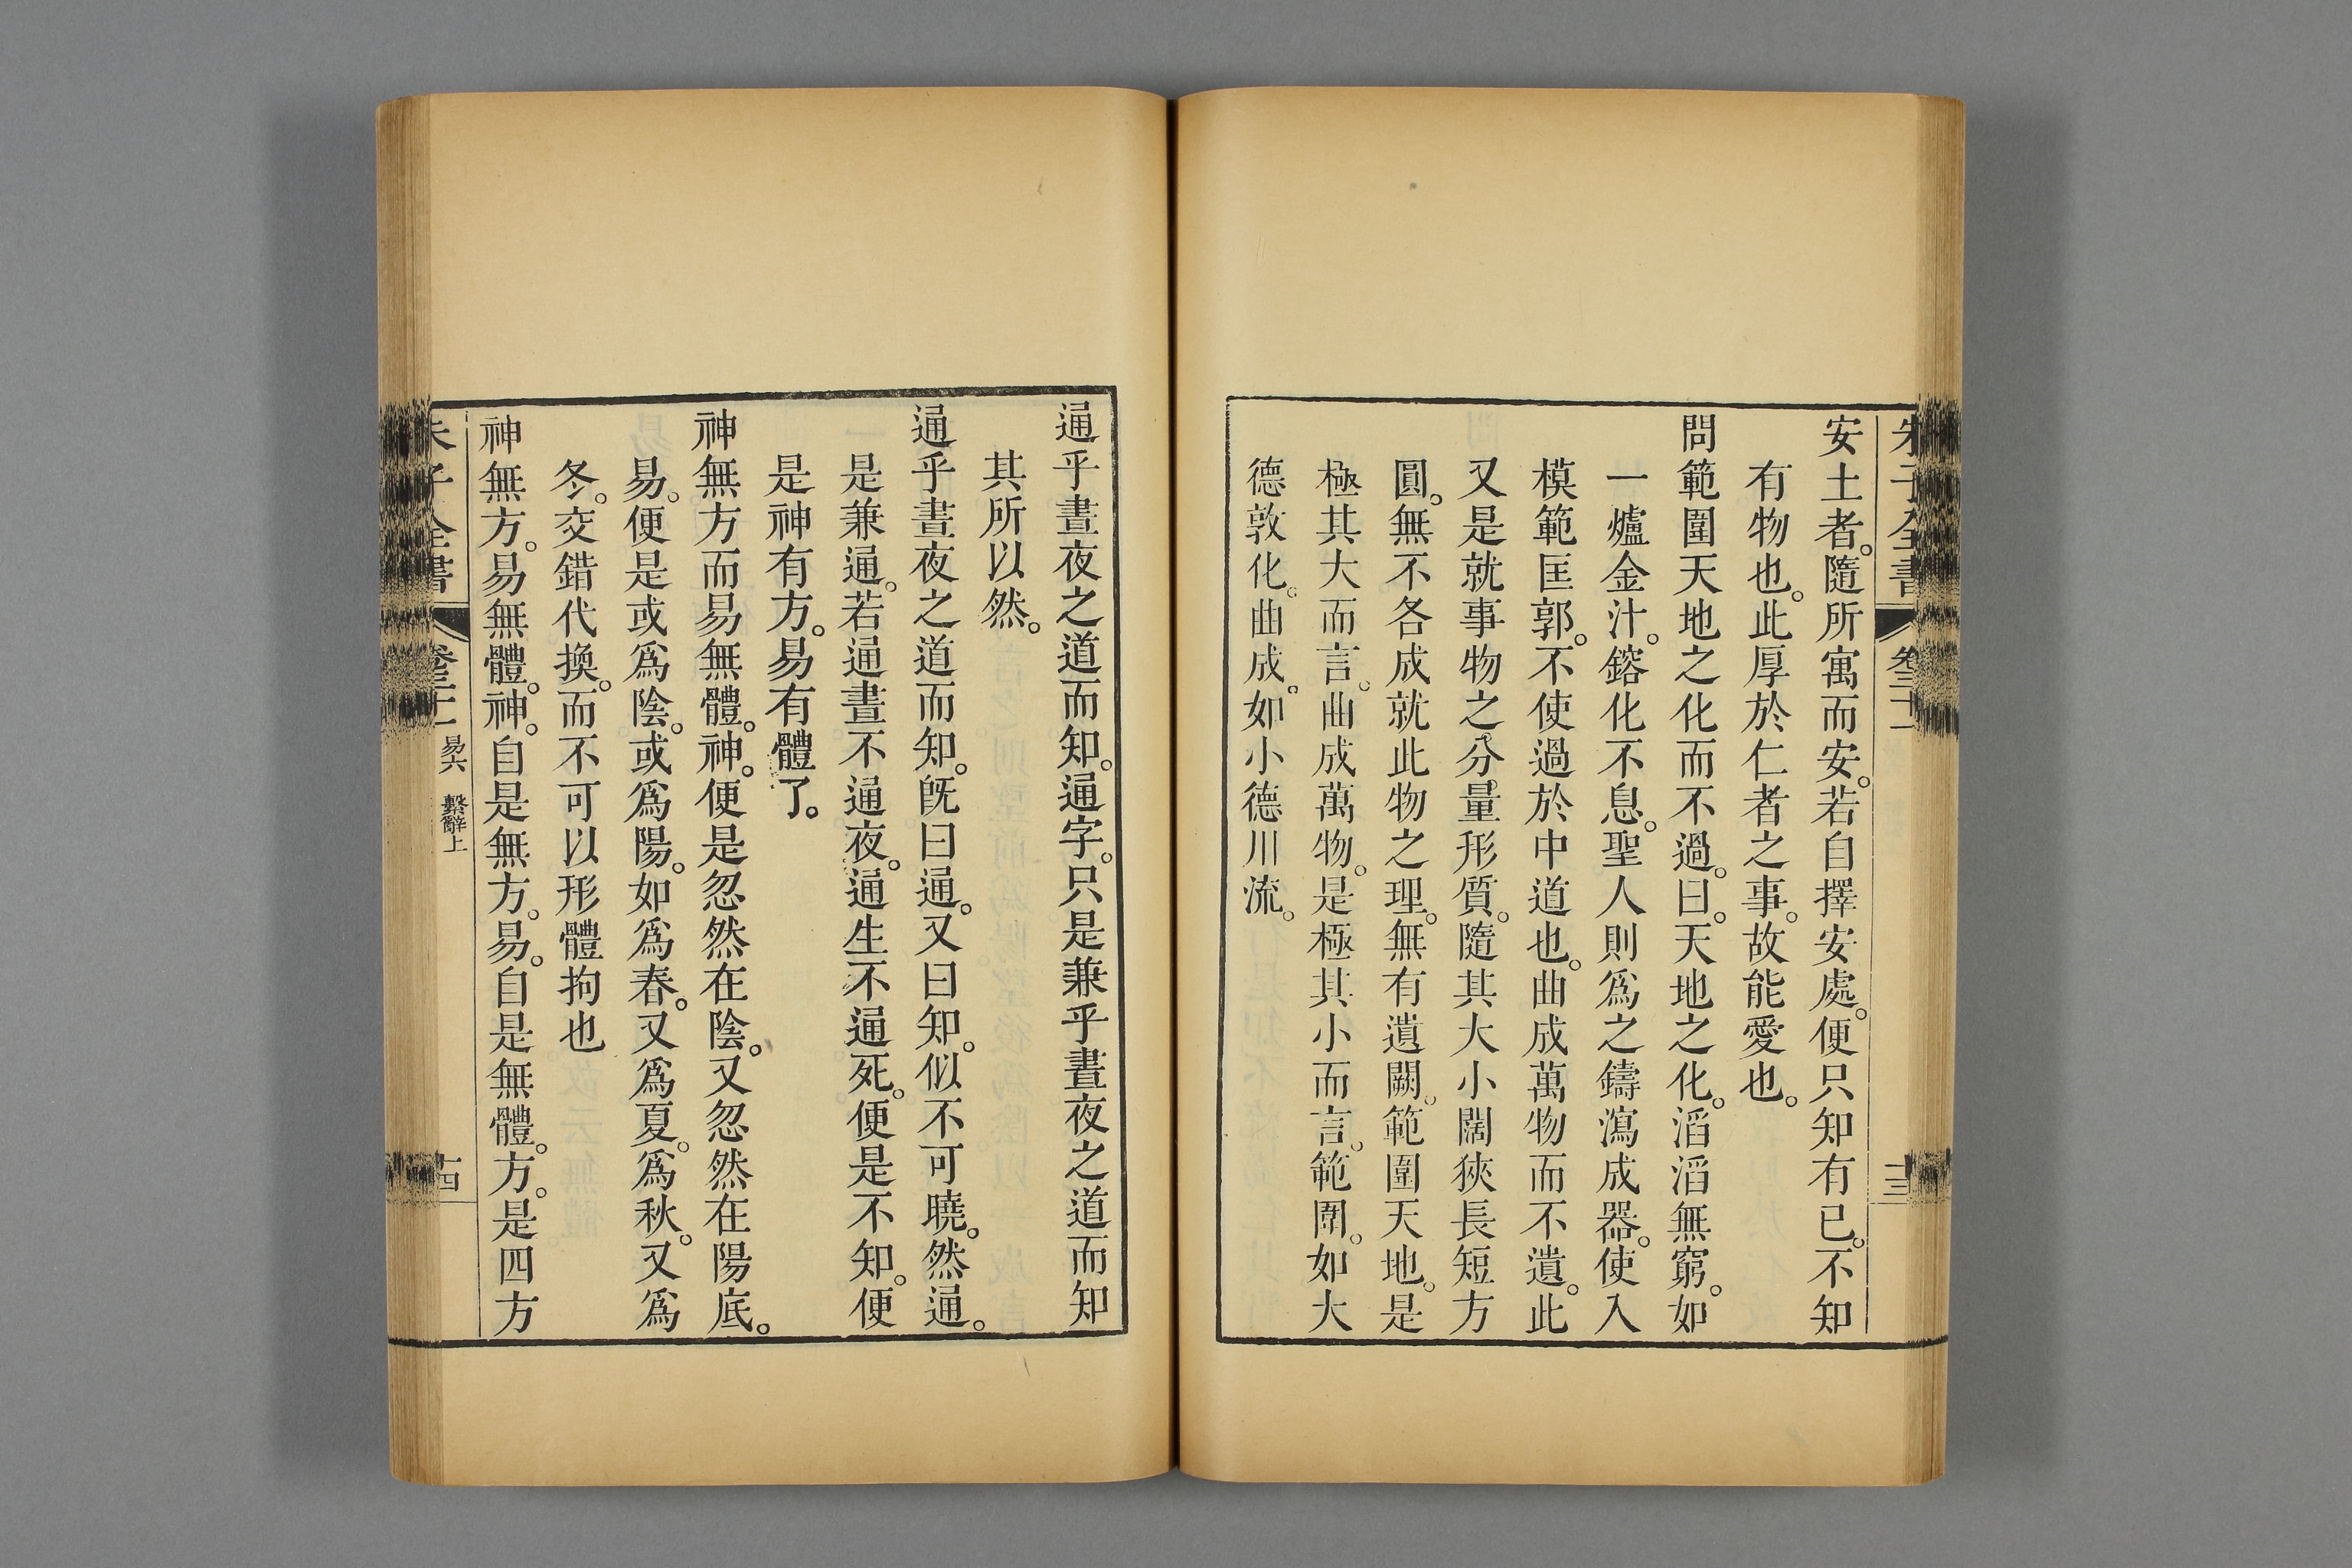 朱子全書 卷三十一 十三
安土者。隨所寓而安。若自擇安處。便只知有己。不知
有物也。此厚於仁者之事。故能愛也。
問範圍天地之化而不過。曰。天地之化。滔滔無窮。如
一爐金汁。鎔化不息。聖人則爲之鑄瀉成器。使入
模範匡郭。不使過於中道也。曲成萬物而不遺。此
又是就事物之分量形質。隨其大小闊狹長短方
圓。無不各成就此物之理。無有遺闕。範圍天地。是
極其大而言。曲成萬物。是極其小而言。範圍。如大
德敦化。曲成。如小德川流。
通乎晝夜之道而知。通字。只是兼乎晝夜之道而知
其所以然。
通乎晝夜之道而知。旣曰通。又曰知。似不可曉。然通。
是兼通。若通晝不通夜。通生不通死。便是不知。便
是神有方。易有體了。
神無方而易無體。神。便是忽然在陰。又忽然在陽底。
易。便是或爲陰。或爲陽。如爲春。又爲夏。爲秋。又爲
冬。交錯代換。而不可以形體拘也
神無方。易無體。神。自是無方。易。自是無體。方。是四方
朱子全書 卷三十一 易六 繫辭上 十四